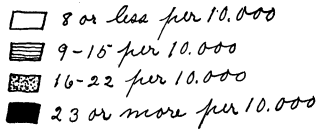 8 or less per 10.000
9-15 per 10.000
16-22 per 10.000
23 or more per 10.000